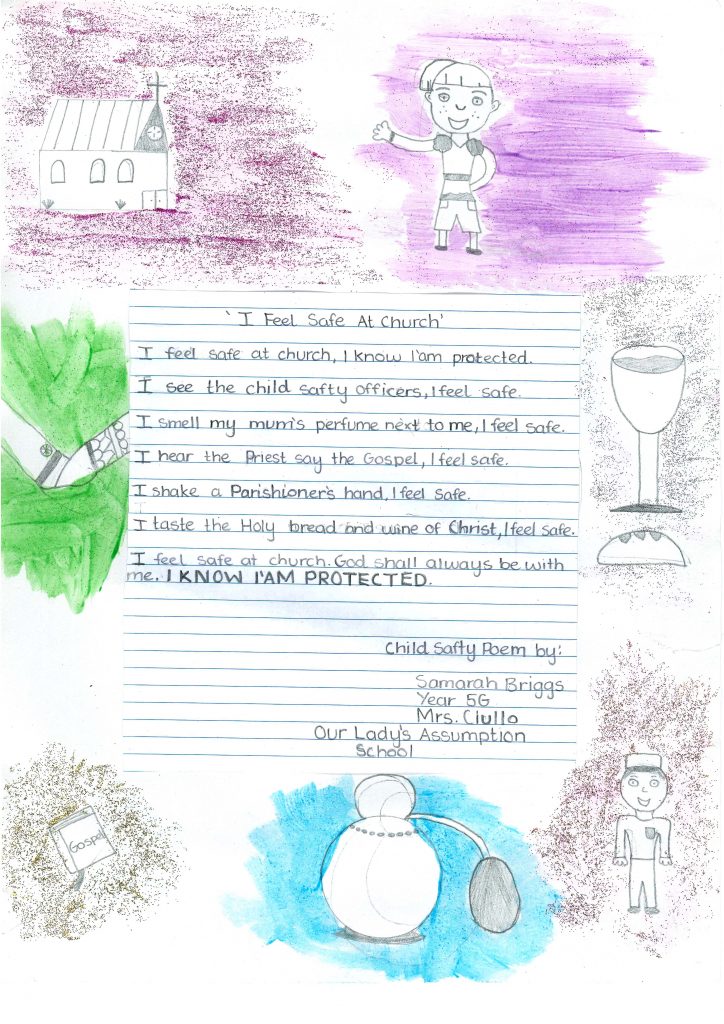 ' I Feel Safe At Church'
I feel safe at church, I know I'am protected.
I see the child safty officers, I feel safe.
I smell my mum's perfume next to me, I feel safe.
I hear the Priest say the Gospel, I feel safe.
I shake a Parishioner's hand, I feel safe.
I taste the Holy bread and wine of Christ, I feel safe.
I feel safe at church. God shall always be with
me. I KNOW I'AM PROTECTED.
Child Safty Poem by:
Samarah Briggs
Year 5G
Mrs. Ciullo
Our Lady's Assumption
School
Gospel